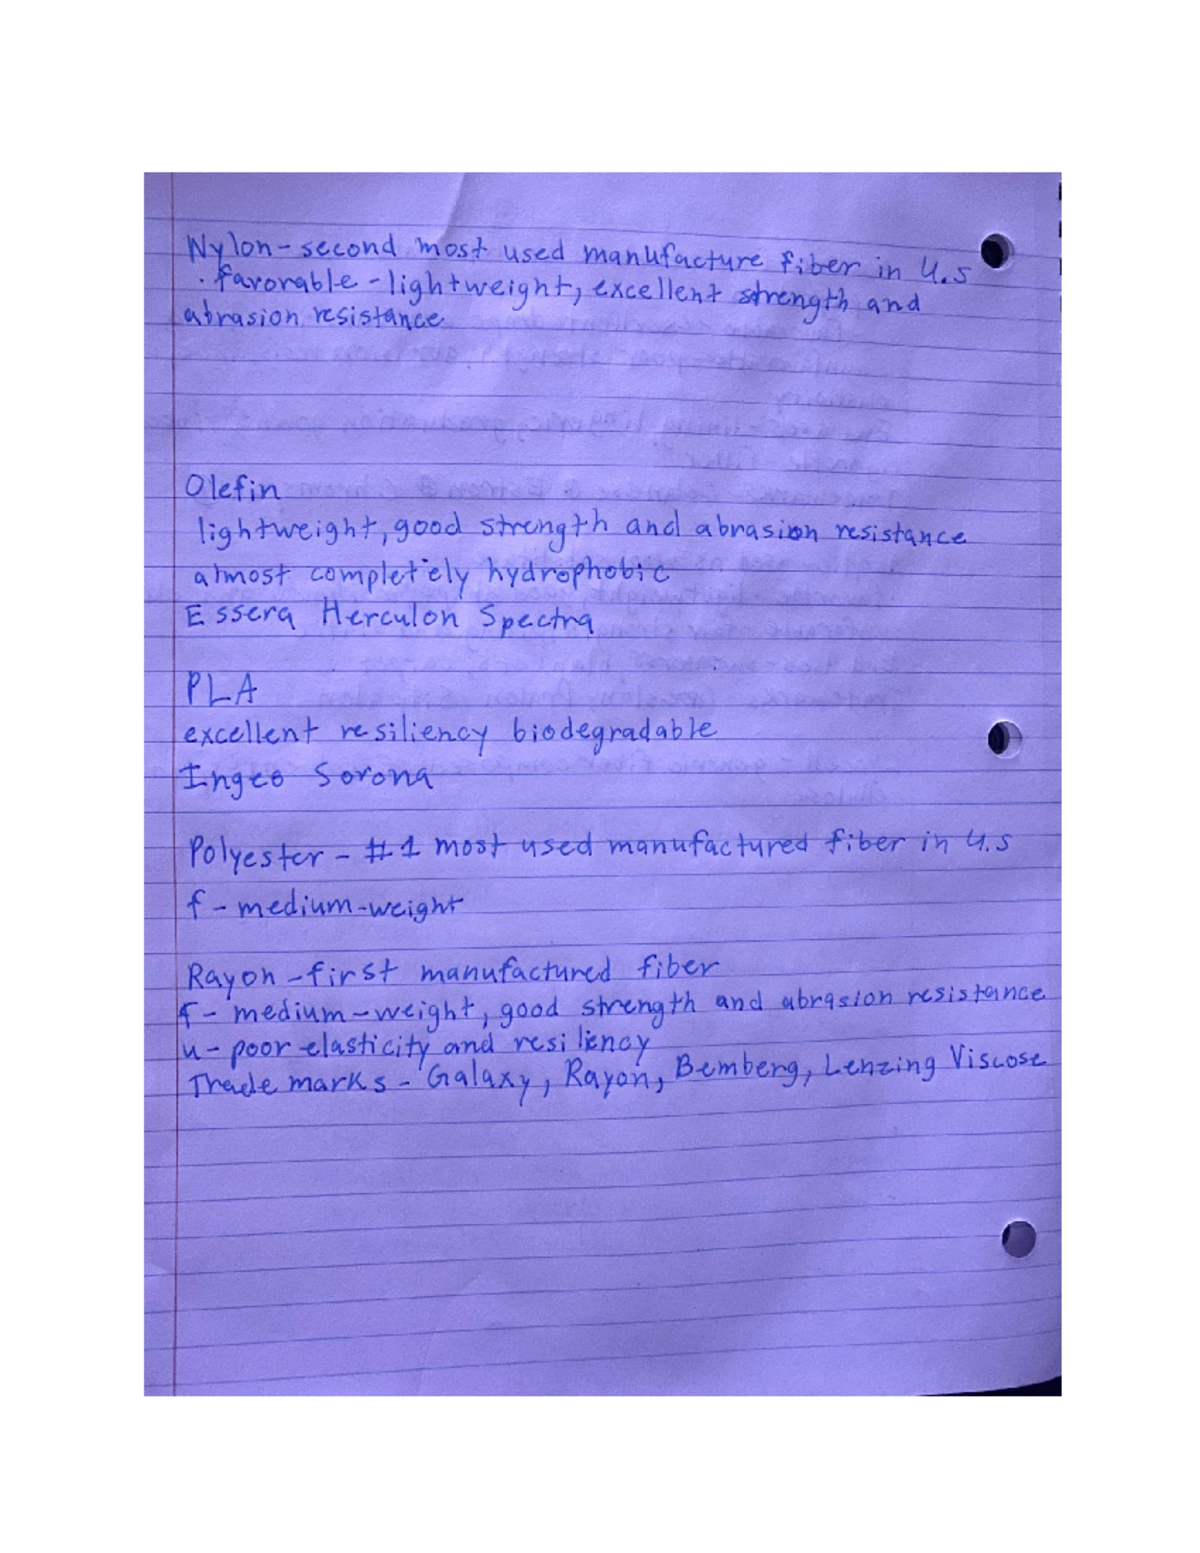 Nylon - second most used manufacture fiber in U.S
. favorable - lightweight, excellent strength and
abrasion resistance
Olefin
lightweight, good strength and abrasion resistance
almost completely hydrophobic
Essera Herculon Spectra
PLA
excellent resiliency biodegradable
Ingeo Sorona
Polyester - #1 most used manufactured fiber in U.S
f - medium-weight
Rayon - first manufactured fiber
f - medium-weight, good strength and abrasion resistance
u - poor elasticity and resiliency
Trade marks - Galaxy, Rayon, Bemberg, Lenzing Viscose